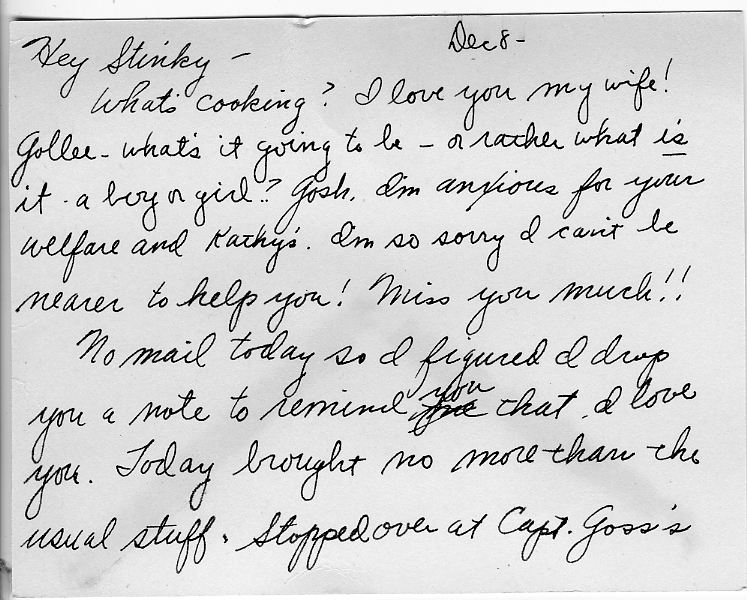 Dec 8-
Hey Stinky -
What's cooking? I love you my wife!
Gollee - what's it going to be - or rather what is
it - a boy or girl? Gosh. I'm anxious for your
welfare and Kathy's. I'm so sorry I can't be
nearer to help you! Miss you much!!
No mail today so I figured I drop
you a note to remind you that I love
you. Today brought no more than the
usual stuff. Stopped over at Capt. Goss's